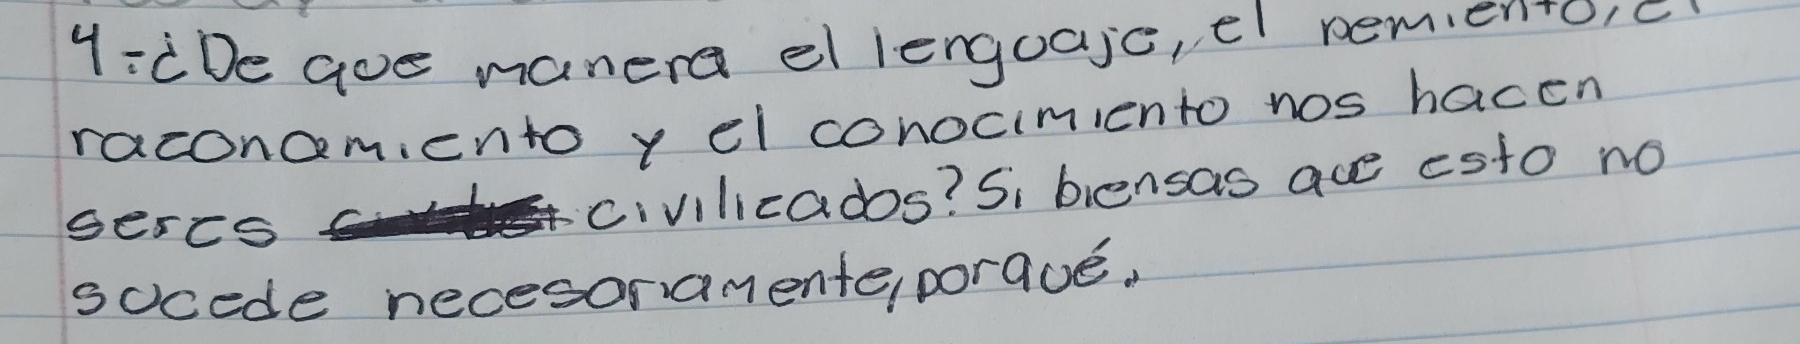 4-¿De que manera el lenguaje, el pemiento, el
raconamiento y el conocimiento nos hacen
seres civilicados? Si biensas que esto no
sucede necesariamente, porqué.